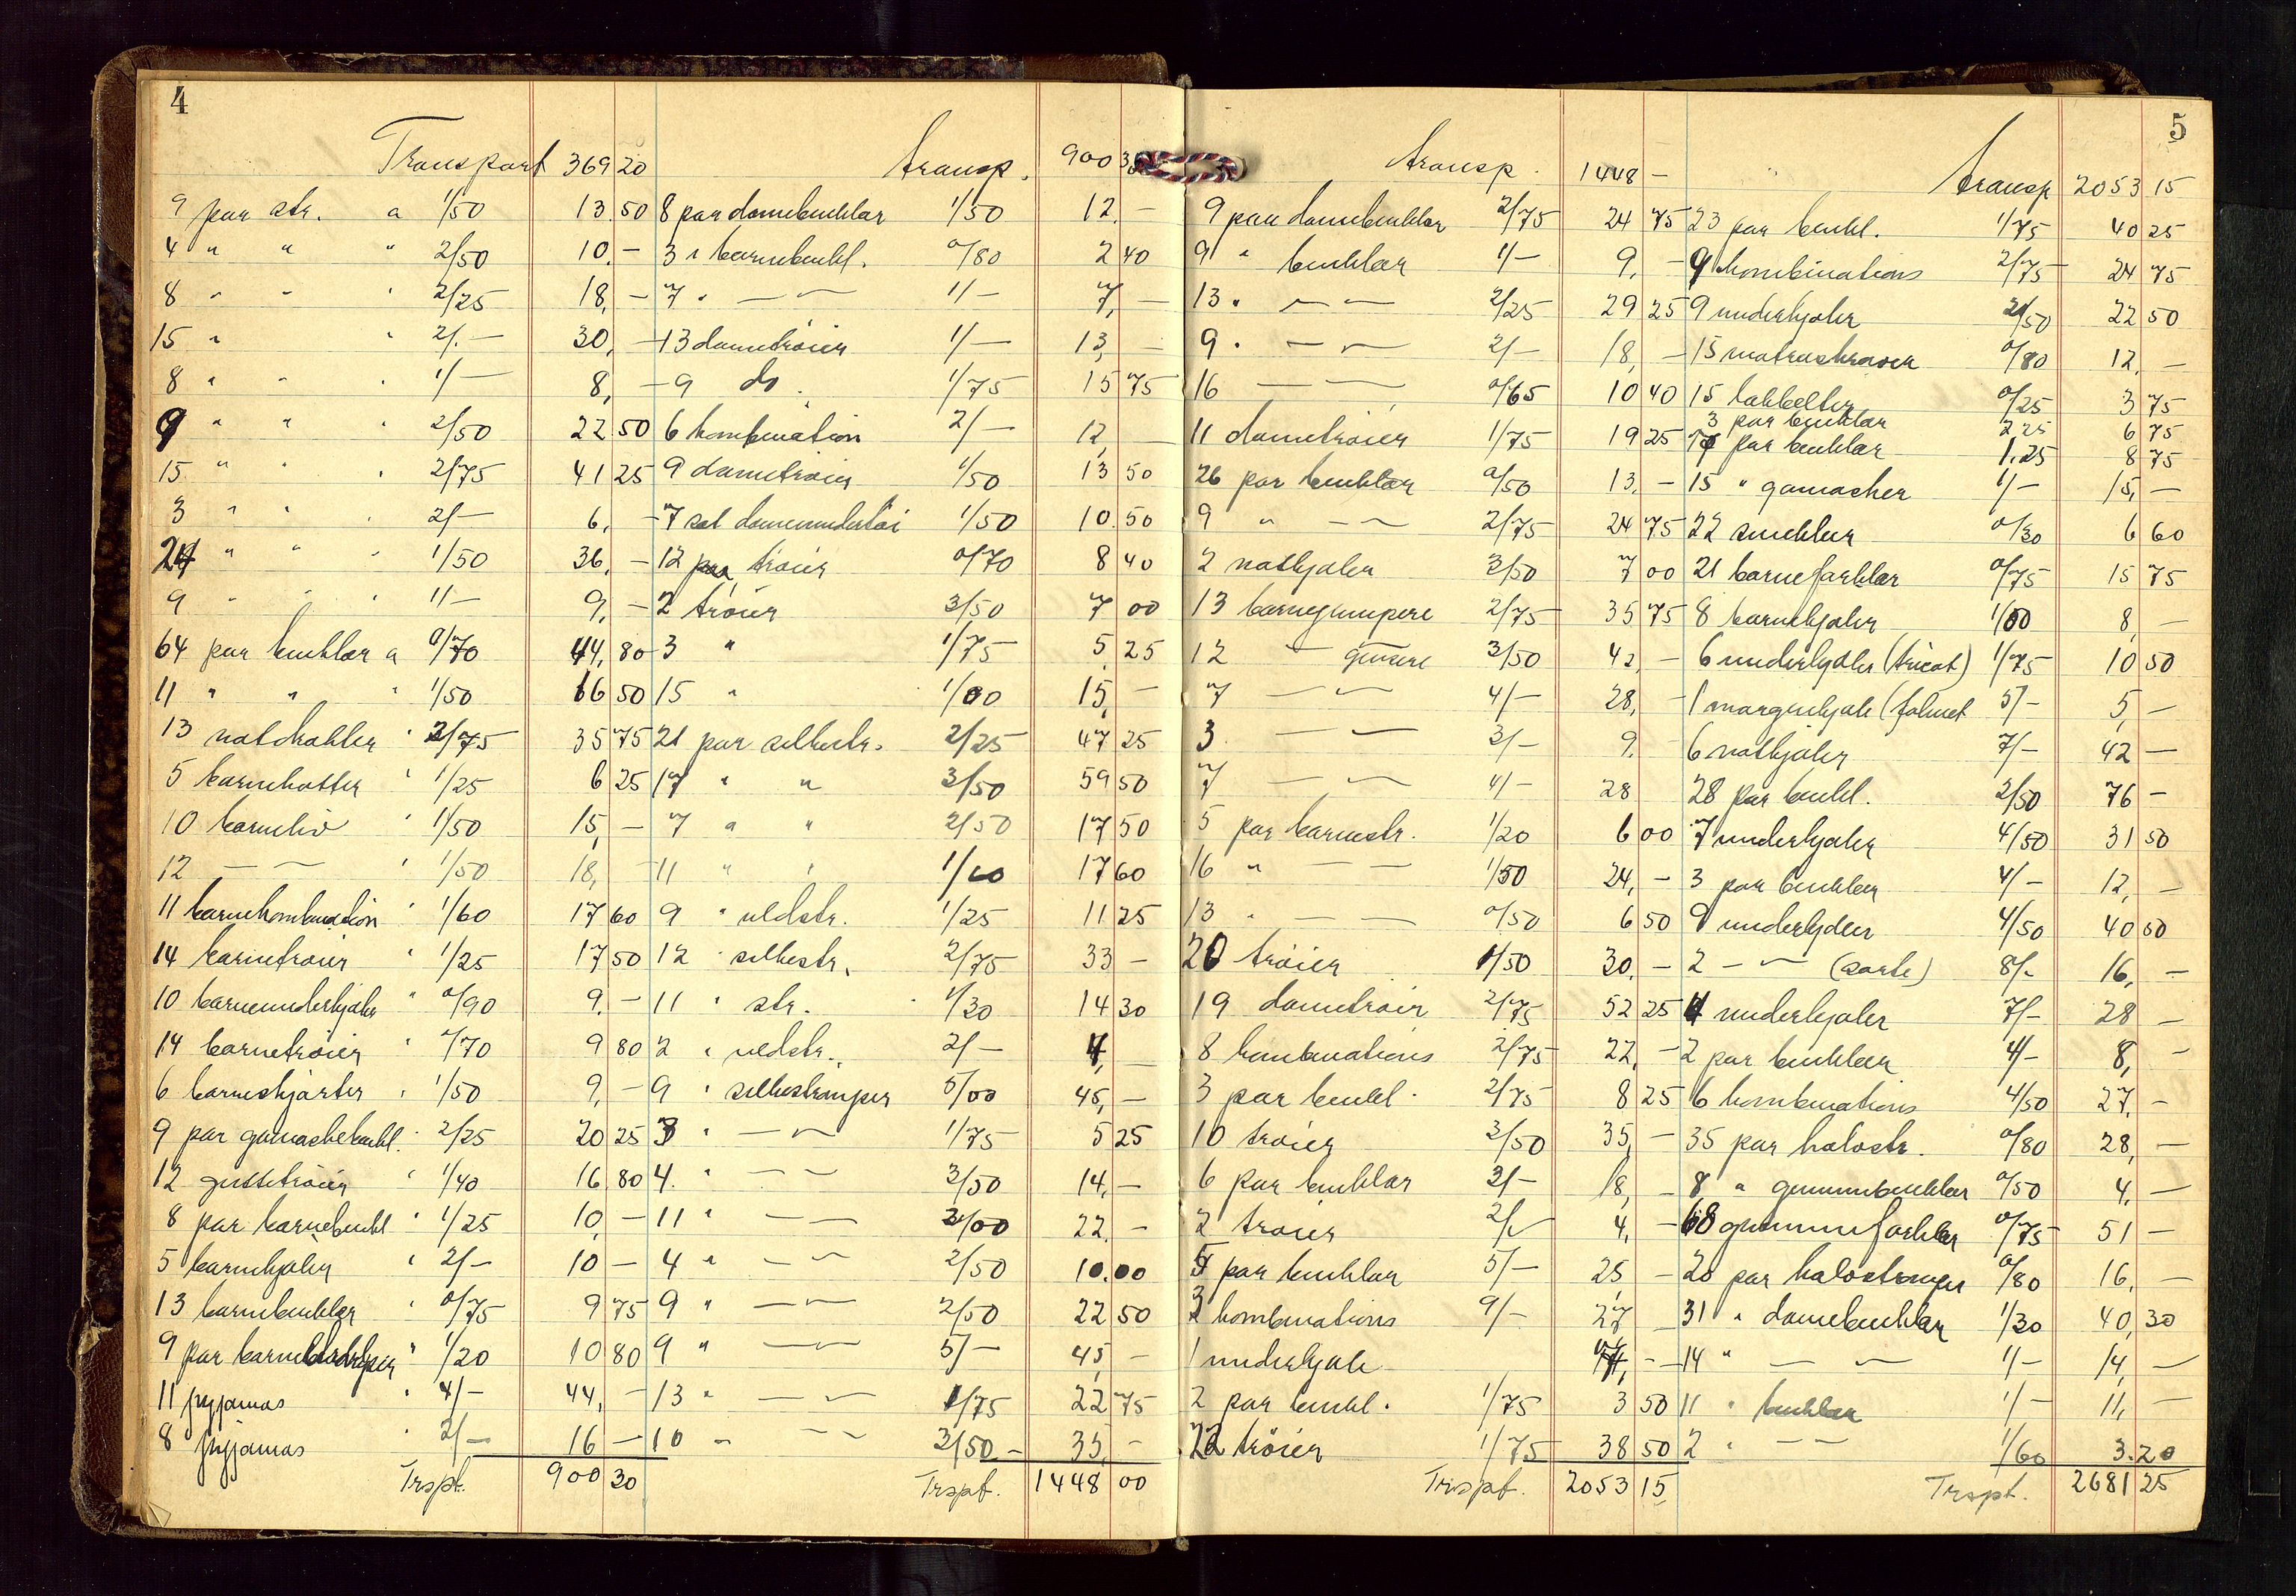 4
Transport 369 20
9 par str. a 1/50 13.50
4 " " " 2/50 10.-
8 " " " 2/25 18,-
15 " " 2/- 30,-
8 " " " 1/- 8,-
9 " " " 2/50 22 50
15 " " " 2/75 41 25
3 " " " 2/- 6,-
24 " " " 1/50 36,-
9 " " " 1/- 9,-
64 par buklar a 0/70 44,80
11 " " " 1/50 16 50
13 " 2/75 35 75
5 " 1/25 6 25
10 barneliv " 1/50 15,-
12 — " — " 1/50 18,-
11 barnekombination " 1/60 17 60
14 barnetröier " 1/25 17 50
10 barneunderkjoler " 0/90 9.-
14 barnetröier " 0/70 9 80
6 barneskjörter " 1/50 9,-
9 par gamachebukl. " 2/25 20 25
12 " 1/40 16 80
8 par barnebukl " 1/25 10,-
5 barnekjoler " 2/- 10 -
13 barnebuklar " 0/75 9 75
9 par " 1/20 10 80
11 pyjamas " 4/- 44,-
8 pyjamas " 2/- 16 -
Trspt. 900 30
transp. 900 30
8 par damebuklar 1/50 12.-
3 " barnebukl. 0/80 2 40
7 " — " — 1/- 7,-
13 dametröier 1/- 13,-
9 do. 1/75 15 75
6 kombination 2/- 12,-
9 dametröier 1/50 13 50
7 set dameundertöi 1/50 10.50
12 tröier 0/70 8 40
2 tröier 3/50 7 00
3 " 1/75 5 25
15 " 1/00 15,-
21 par silkestr. 2/25 47 25
17 " " 3/50 59 50
7 " " 2/50 17 50
11 " " 1/60 17 60
9 " uldstr. 1/25 11 25
12 " silkestr. 2/75 33 -
11 " str. 1/30 14 30
2 " uldstr. 2/- 4,-
9 " silkeströmper 5/00 45,-
3 " — " — 1/75 5 25
4. " — " — 3/50 14,-
11 " — " — 2/00 22.-
4 " — " — 2/50 10.00
9 " — " — 2/50 22 50
9 " — " — 5/- 45,-
13 " — " — 1/75 22 75
10 " — " — 3/50 - 35,-
Trspt. 1448 00
5
transp. 1448 -
9 par damebuklar 2/75 24 75
9 " buklar 1/- 9,-
13 " — " — 2/25 29 25
9 " — " — 2/- 18,-
16 — " — 0/65 10 40
11 dametröier 1/75 19 25
26 par buklar 0/50 13,-
9 " — " — 2/75 24 75
2 natkjoler 3/50 7 00
13 barnejumpere 2/75 35 75
12 " 3/50 42,-
7 — " — 4/- 28,-
3 — " — 3/- 9.
7 — " — 4/- 28
5 par barnestr. 1/20 6 00
16 " — " — 1/50 24,-
13 " — " — 0/50 6 50
20 tröier 1/50 30.-
19 dametröier 2/75 52 25
8 kombinations 2/75 22,-
3 par bukl. 2/75 8 25
10 tröier 3/50 35,-
6 par buklar 3/- 18,-
2 tröier 2/- 4,-
5 par buklar 5/- 25,-
3 kombinations 9/- 27 -
1 underkjole -
2 par bukl. 1/75 3 50
22 tröier 1/75 38 50
Trspt. 2053 15
transp 2053 15
23 par bukl. 1/75 40 25
9 kombinations 2/75 24 75
9 underkjoler 2/50 22 50
15 0/80 12.-
15 0/25 3 75
3 par buklar 2 25 6 75
7 par buklar 1.25 8 75
15 " gamacher 1/- 15,-
22 smekker 0/30 6 60
21 barneforklær 0/75 15 75
8 barnekjoler 1/00 8,-
6 underkjoler (tricot) 1/75 10 50
1 morgenkjole 5/- 5,-
6 natkjoler 7/- 42 -
28 par bukl. 2/50 76 -
7 underkjoler 4/50 31 50
3 par buklar 4/- 12,-
9 underkjoler 4/50 40 50
2 — " — (sorte) 8/- 16,-
4 underkjoler 7/- 28 -
2 par buklar 4/- 8,-
6 kombinations 4/50 27.-
35 par halvstr. 0/80 28,-
8 " gummibuklar 0/50 4,-
68 gummiforklær 0/75 51 -
20 par halvströmper 0/80 16,-
31 " damebuklar 1/30 40,30
14 " — " — 1/- 14,-
11 " buklar 1/- 11,-
2 " — " — 1/60 3.20
Trspt. 2681 25